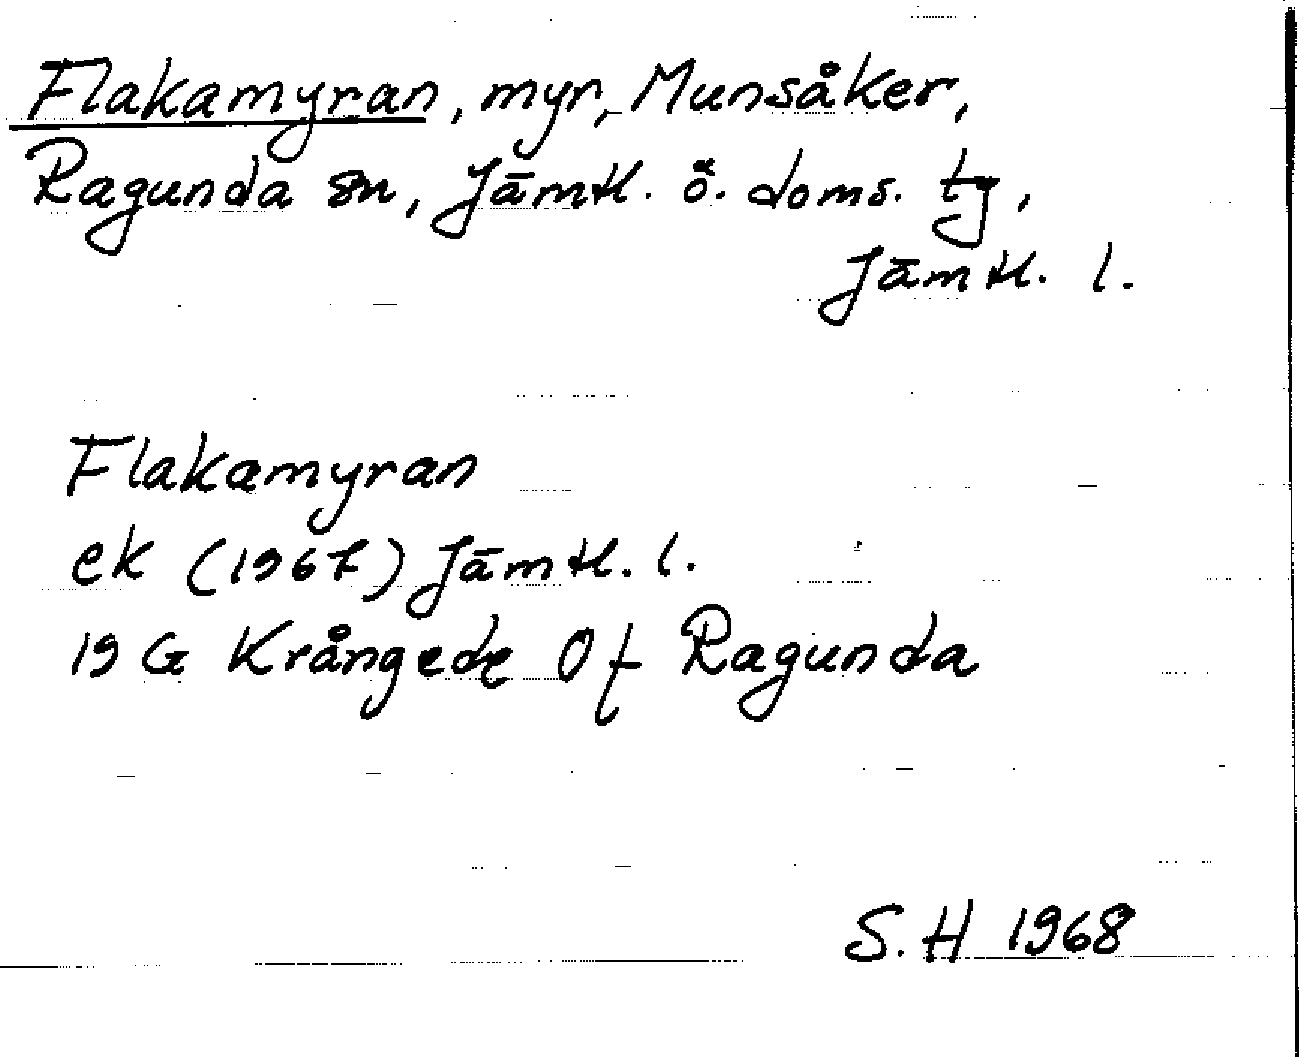 Flakamyran, myr, Munsåker,
Ragunda sn, Jämtl. ö. doms. tg,
Jämtl. l.
Flakamyran
ek (1967) Jämtl. l.
19 G Krångede Of Ragunda
S. H 1968